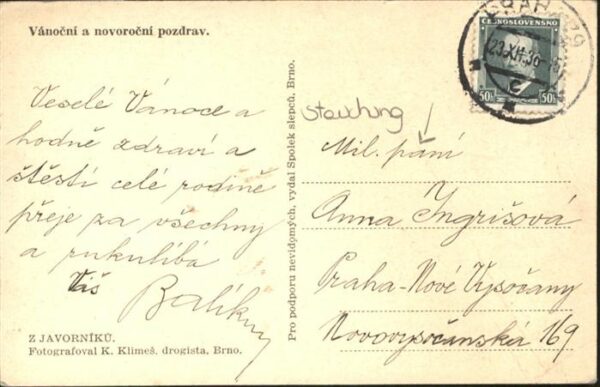 Vánoční a novoroční pozdrav.
Veselé Vánoce a
hodně zdraví a
štěstí celé rodině
přeje za všechny
a rukulíbá
Váš
Z JAVORNÍKŮ.
Fotografoval K. Klimeš, drogista, Brno.
Pro podporu nevidomých, vydal Spolek slepců, Brno.
ČESKOSLOVENSKO
50h 50h
PRAHA
23.XII.36
Mil. paní
Anna Ingrišová
Praha-Nové Vysočany
Novovysočanská 169